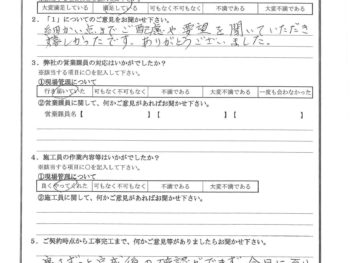 大変満足している 満足している 可もなく不可もなく 不満である 大変不満である
２.「１」についてのご意見をお聞かせ下さい。
細かい点までご配慮や要望を聞いていただき
嬉しかったです。ありがとうございました。
３. 弊社の営業課員の対応はいかがでしたか？
※該当する項目に○を記入して下さい。
①現場管理について
行き届いていた 可もなく不可もなく 不満である 大変不満である 一度も会わなかった
②営業課員に関して、何かご意見があればお聞かせ下さい。
営業課員名【 】【 】【 】
４. 施工員の作業内容等はいかがでしたか？
※該当する項目に○を記入して下さい。
①現場管理について
良くやってくれた 可もなく不可もなく 不満である 大変不満である
②施工員に関して、何かご意見があればお聞かせ下さい。
５. ご契約時点から工事完工まで、何かご意見等がありましたらお聞かせ下さい。